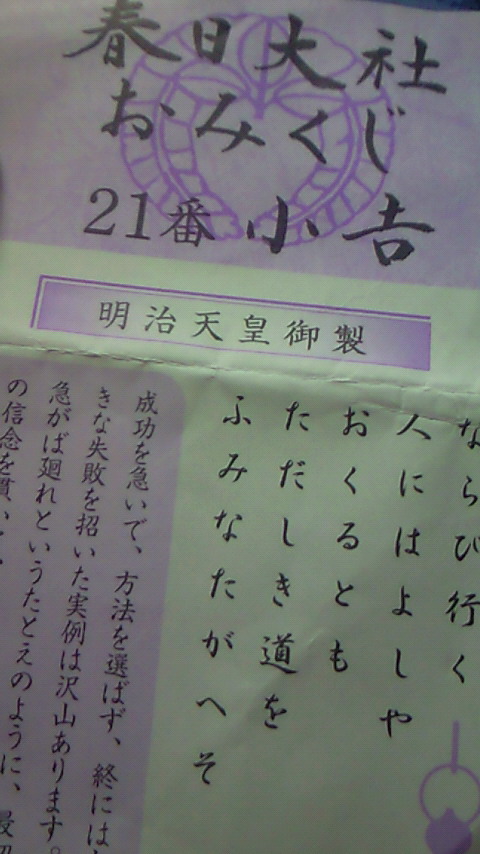 春日大社
おみくじ
21番 小吉
明治天皇御製
ならび行く
人にはよしや
おくるとも
ただしき道を
ふみなたがへそ
成功を急いで、方法を選ばず、終には
きな失敗を招いた実例は沢山あります。
急がば廻れというたとえのように、最初
の信念を貫い